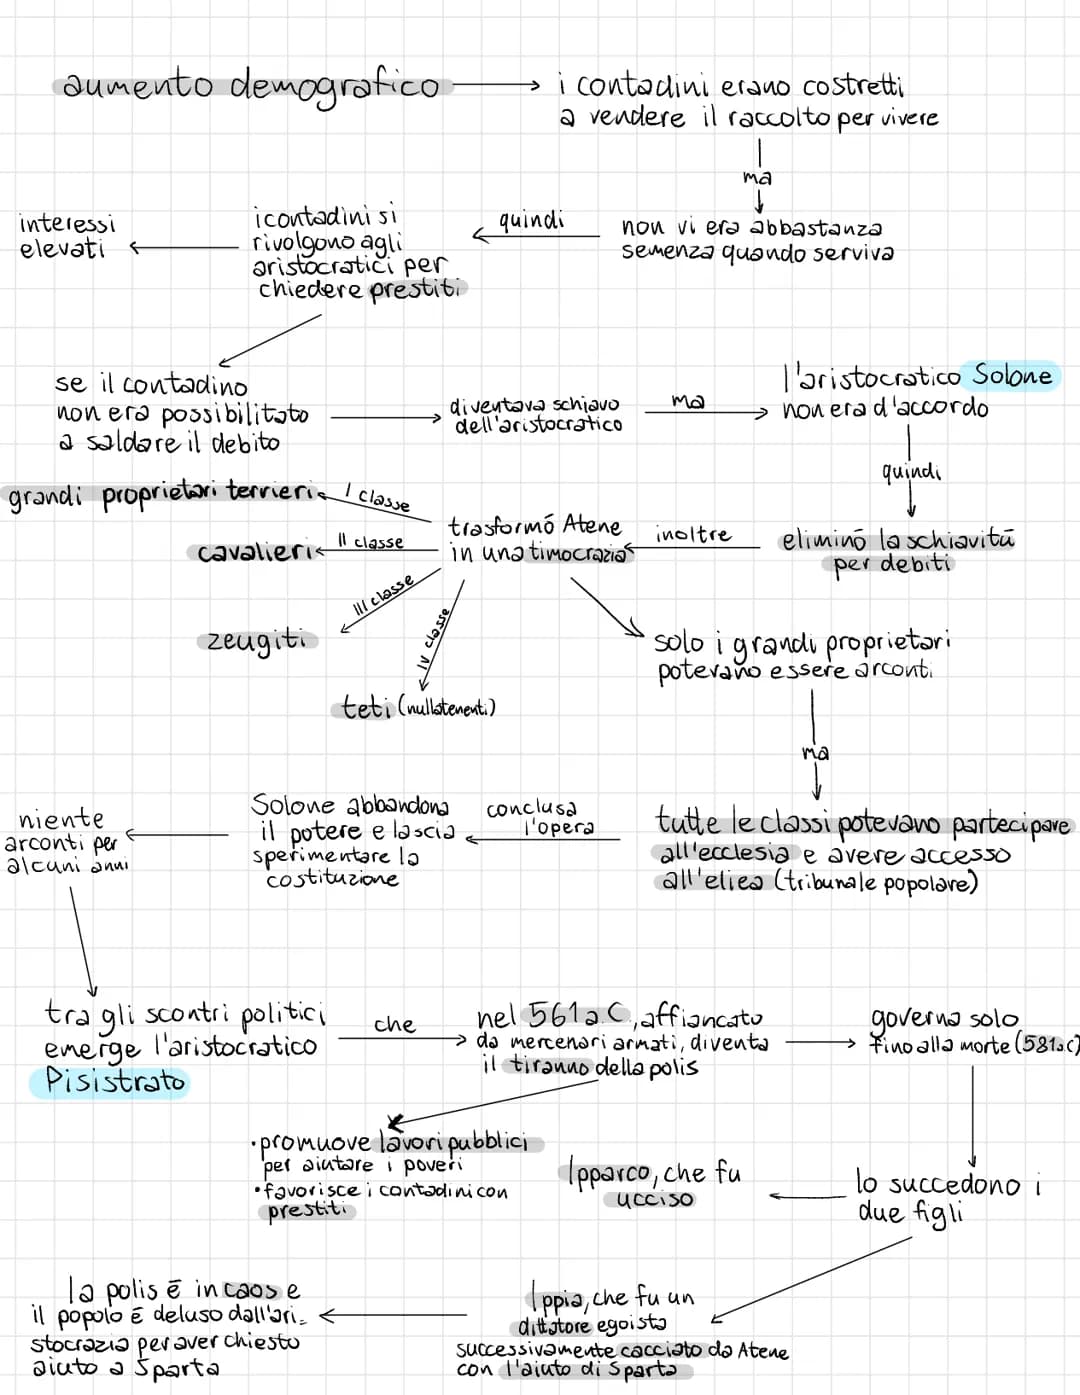 aumento demografico
i contadini erano costretti
a vendere il raccolto per vivere
ma
non vi era abbastanza
semenza quando serviva
quindi
i contadini si
rivolgono agli
aristocratici per
chiedere prestiti
interessi
elevati
se il contadino
non era possibilitato
a saldare il debito
diventava schiavo
dell'aristocratico
ma
l'aristocratico Solone
non era d'accordo
quindi
eliminò la schiavitù
per debiti
inoltre
trasformò Atene
in una timocrazia
I classe
grandi proprietari terrieri
II classe
cavalieri
III classe
zeugiti
IV classe
teti (nullatenenti)
solo i grandi proprietari
potevano essere arconti
ma
tutte le classi potevano partecipare
all'ecclesia e avere accesso
all'eliea (tribunale popolare)
conclusa
l'opera
Solone abbandona
il potere e lascia
sperimentare la
costituzione
niente
arconti per
alcuni anni
tra gli scontri politici
emerge l'aristocratico
Pisistrato
che
nel 561 a.C., affiancato
da mercenari armati, diventa
il tiranno della polis
governa solo
fino alla morte (581a.c)
•promuove lavori pubblici
per aiutare i poveri
•favorisce i contadini con
prestiti
lo succedono i
due figli
Ipparco, che fu
ucciso
Ippia, che fu un
dittatore egoista
successivamente cacciato da Atene
con l'aiuto di Sparta
la polis è in caos e
il popolo è deluso dall'ari_
stocrazia per aver chiesto
aiuto a Sparta